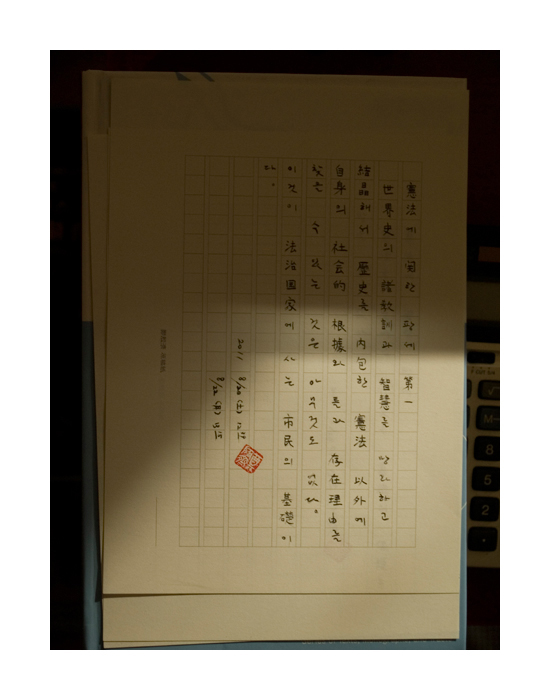 憲法에 關한 斷想 第一
世界史의 諸敎訓과 智慧를 망라하고
結晶해서 歷史를 內包한 憲法 以外에
自身의 社會的 根據와 존과 存在理由를
찾을 수 있는 것은 아무것도 없다.
이것이 法治國家에 사는 市民의 基礎이
다.
2011 8/20 (土)
8/22 (月)